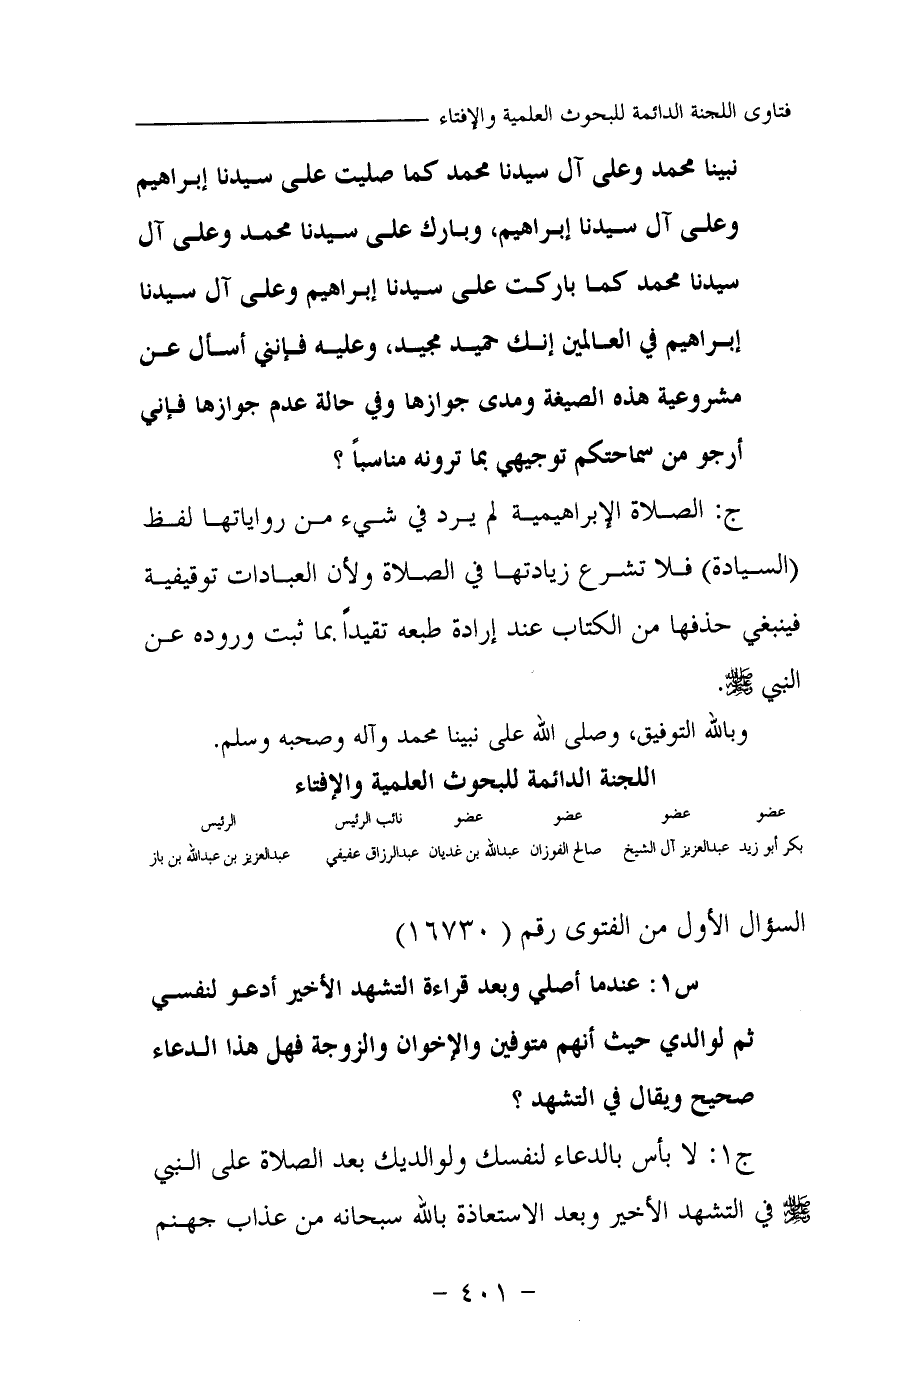 فتاوى اللجنة الدائمة للبحوث العلمية والإفتاء
نبينا محمد وعلى آل سيدنا محمد كما صليت على سيدنا إبراهيم
وعلى آل سيدنا إبراهيم، وبارك على سيدنا محمد وعلى آل
سيدنا محمد كما باركت على سيدنا إبراهيم وعلى آل سيدنا
إبراهيم في العالمين إنك حميد مجيد، وعليه فإنني أسأل عن
مشروعية هذه الصيغة ومدى جوازها وفي حالة عدم جوازها فإني
أرجو من سماحتكم توجيهي بما ترونه مناسباً ؟
ج: الصلاة الإبراهيمية لم يرد في شيء من رواياتها لفظ
(السيادة) فلا تشرع زيادتها في الصلاة ولأن العبادات توقيفية
فينبغي حذفها من الكتاب عند إرادة طبعه تقيداً بما ثبت وروده عن
النبي ﷺ.
وبالله التوفيق، وصلى الله على نبينا محمد وآله وصحبه وسلم.
اللجنة الدائمة للبحوث العلمية والإفتاء
عضو عضو عضو عضو نائب الرئيس الرئيس
بكر أبو زيد عبدالعزيز آل الشيخ صالح الفوزان عبدالله بن غديان عبدالرزاق عفيفي عبدالعزيز بن عبدالله بن باز
السؤال الأول من الفتوى رقم ( ١٦٧٣٠)
س١: عندما أصلي وبعد قراءة التشهد الأخير أدعو لنفسي
ثم لوالدي حيث أنهم متوفين والإخوان والزوجة فهل هذا الدعاء
صحيح ويقال في التشهد ؟
ج١: لا بأس بالدعاء لنفسك ولوالديك بعد الصلاة على النبي
ﷺ في التشهد الأخير وبعد الاستعاذة بالله سبحانه من عذاب جهنم
- ٤٠١ -